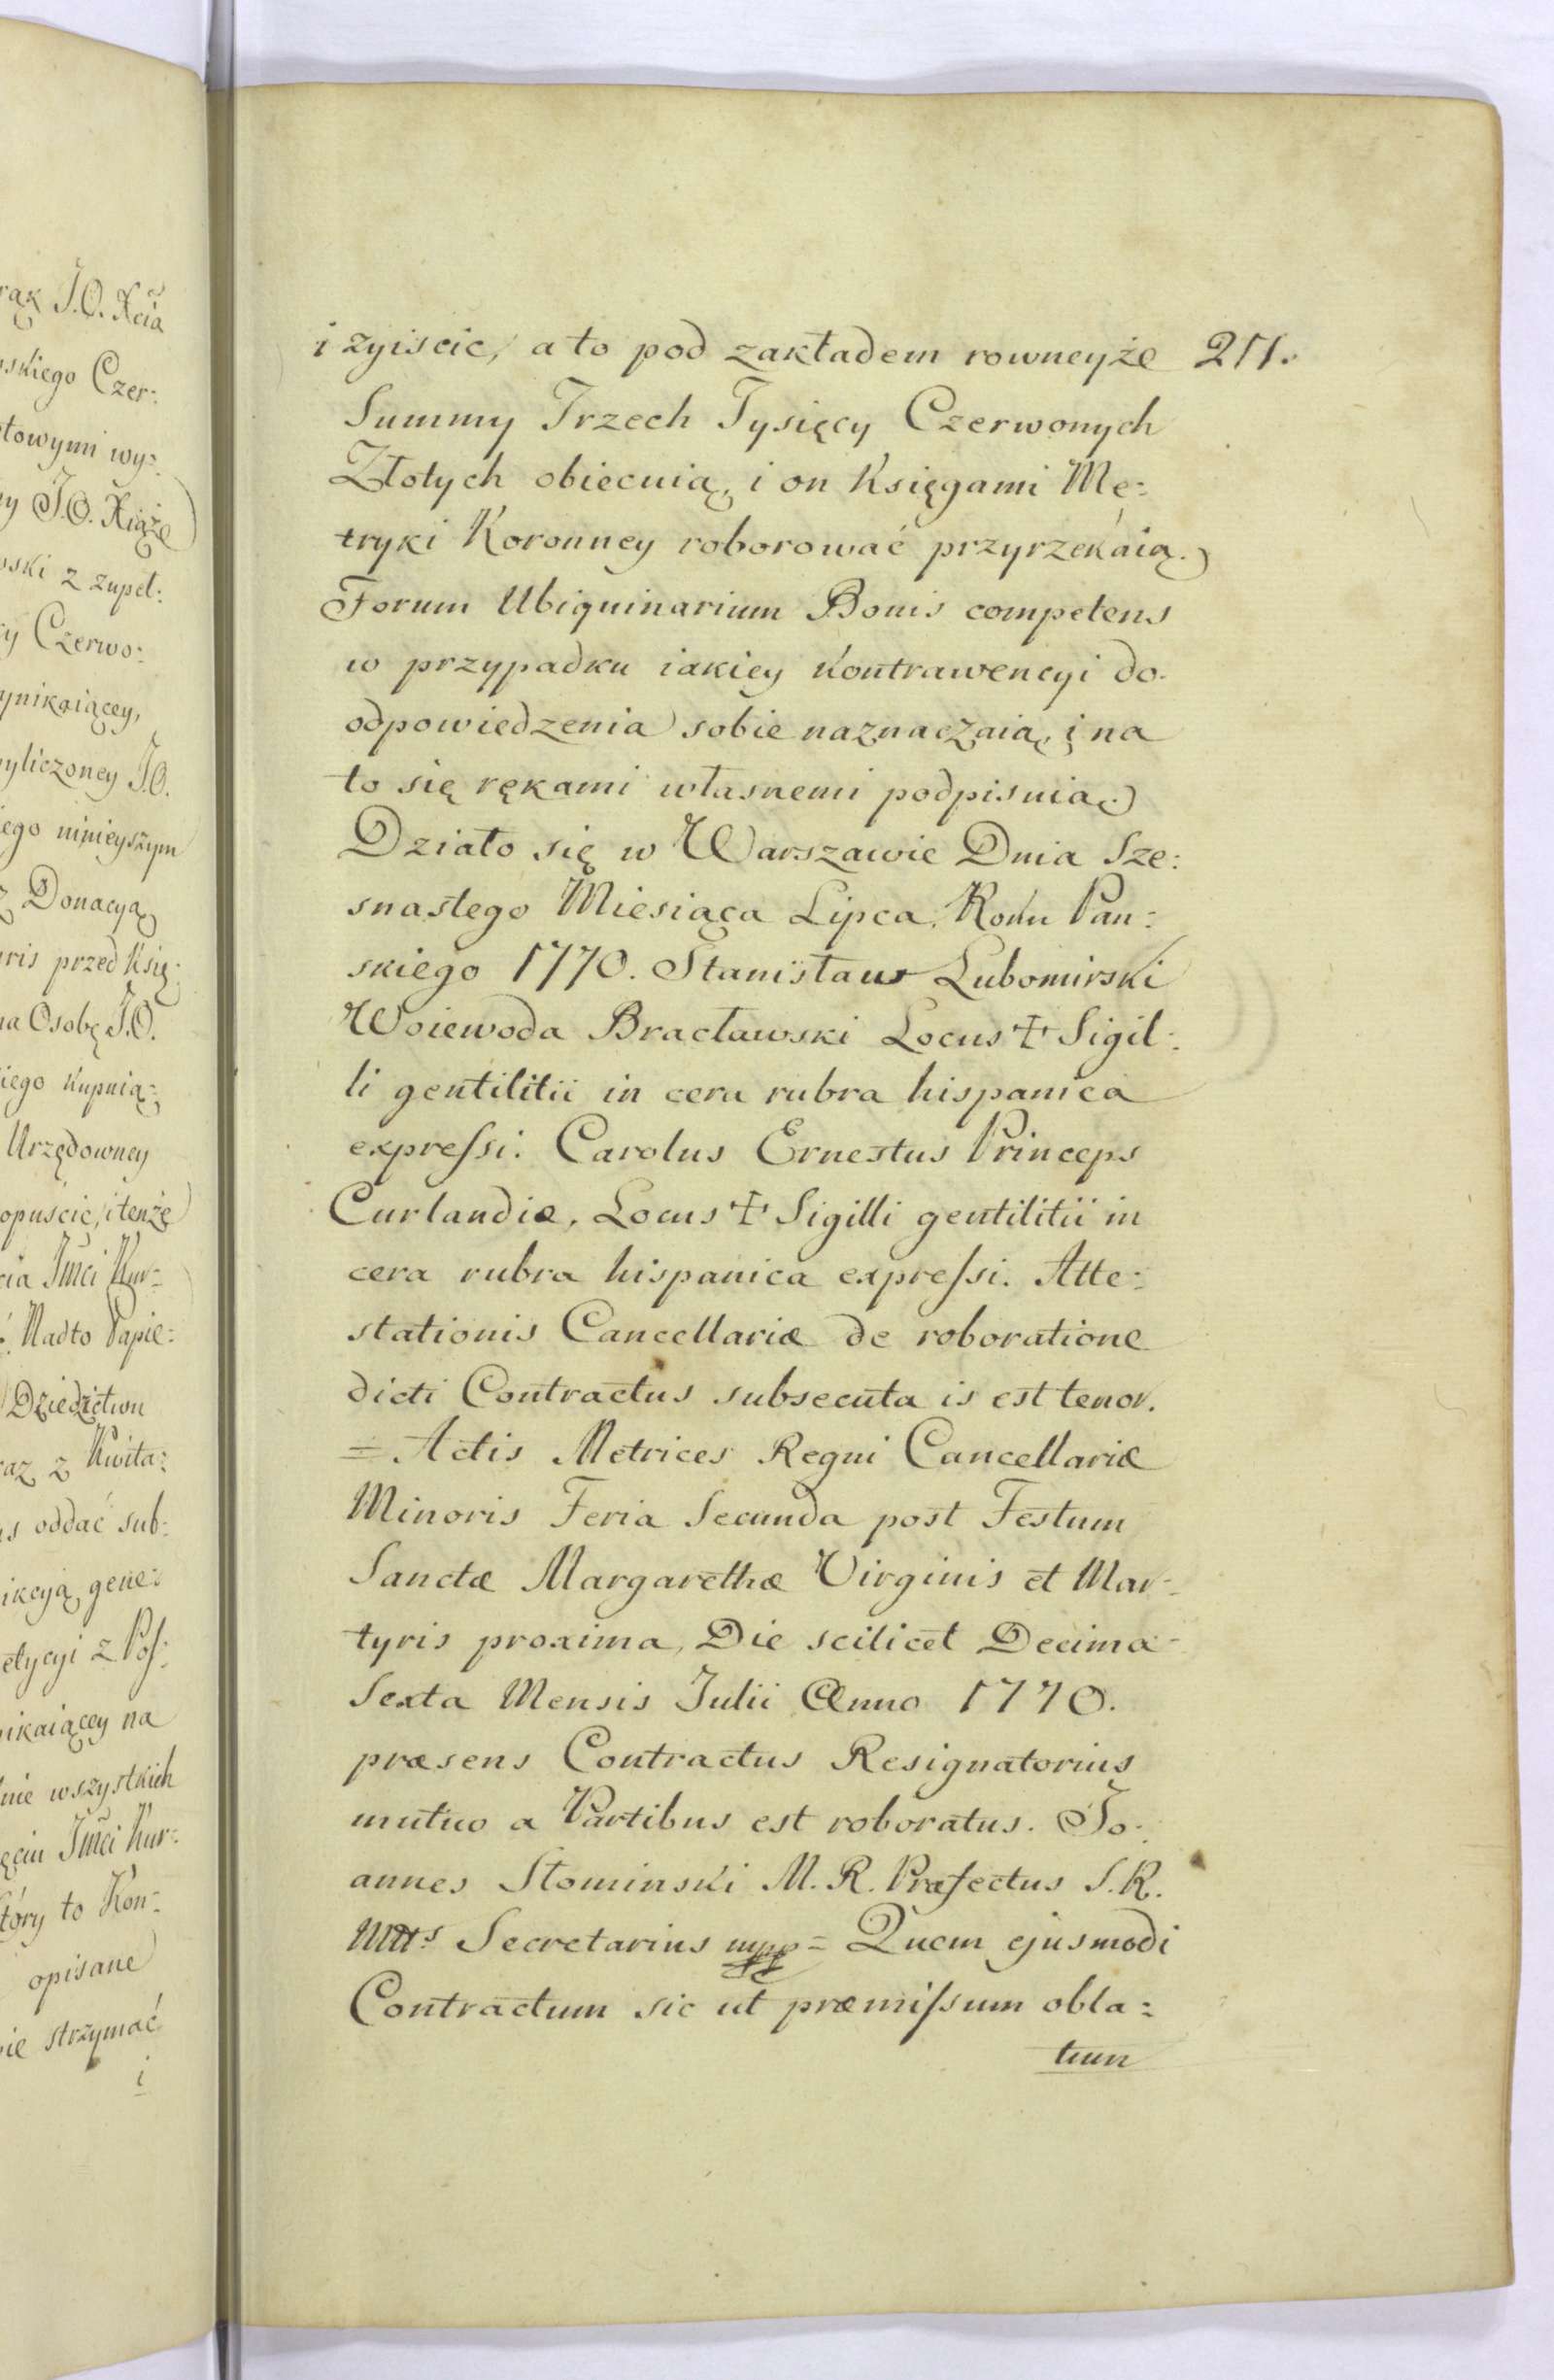 rąk J.O. Xcia
skiego Czer:
towymi wy:
y J.O. Xiąże
ski z zupeł:
cy Czerwo:
ynikaiącey,
yliczoney J.O.
ego ninieyszym
ż Donacyą
ris przed Księ:
na Osobę J.O.
iego kupnią:
Urzędowney
opuścić, i tenże
cia Jmći Kur:
Nadto Papie:
Dziedzictwu
raz z Kwita:
s oddać sub:
ikcyą gene:
etycyi z Poſ:
ikaiącey na
nie wszystkich
ęciu Jmći Kur:
tóry to Kon:
opisane
ie strzymać
i
i zyiscic, a to pod zakładem rowneyże 271.
Summy Trzech Tysięcy Czerwonych
Złotych obiecuią, i on Księgami Me:
tryki Koronney roborować przyrzekaią.
Forum Ubiquinarium Bonis competens
w przypadku iakiey kontrawencyi do
odpowiedzenia sobie naznaczaią, i na
to się rękami własnemi podpisuią.
Działo się w Warszawie Dnia Sze:
snastego Miesiąca Lipca, Roku Pan:
skiego 1770. Stanisław Lubomirski
Woiewoda Bracławski Locus ✝ Sigil:
li gentilitii in cera rubra hispanica
expreſsi. Carolus Ernestus Princeps
Curlandiæ, Locus ✝ Sigilli gentilitii in
cera rubra hispanica expreſsi. Atte:
stationis Cancellariæ de roboratione
dicti Contractus subsecuta is est tenor.
= Actis Metrices Regni Cancellariæ
Minoris Feria Secunda post Festum
Sanctæ Margarethæ Virginis et Mar:
tyris proxima, Die scilicet Decima
Sexta Mensis Julii Anno 1770.
præsens Contractus Resignatorius
mutuo a Partibus est roboratus. Jo:
annes Słominski M. R. Præfectus S. R.
Mttis Secretarius mpp = Quem ejusmodi
Contractum sic ut præmiſsum obla:
tum